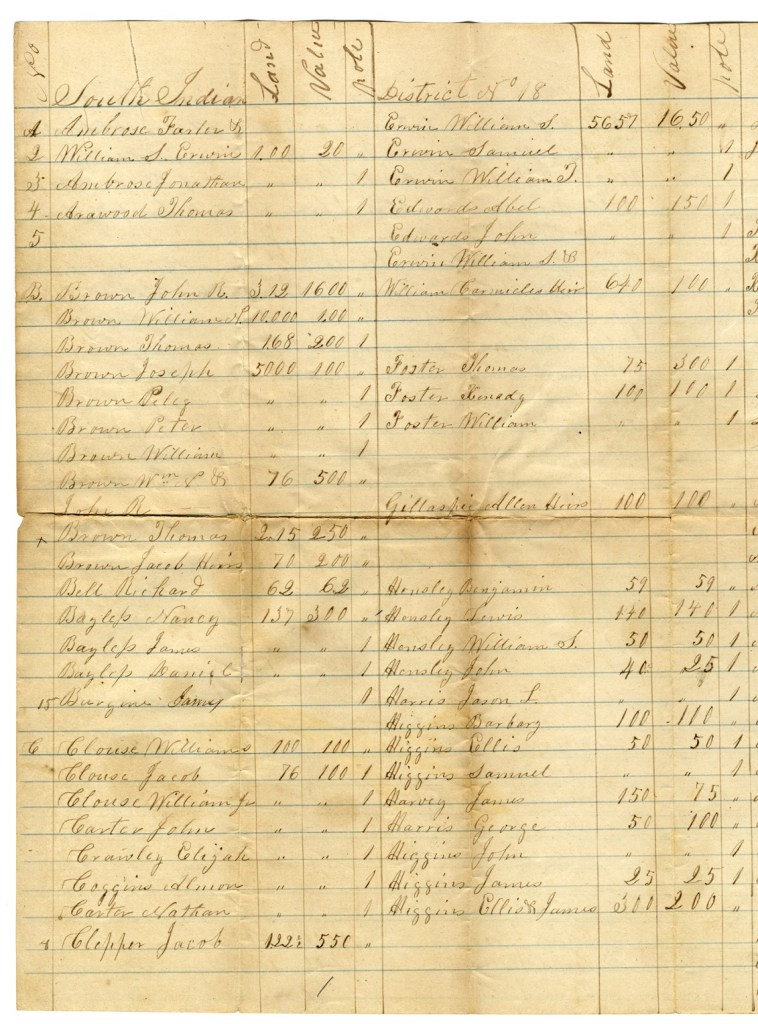 No Land Value pole Land Value pole
South Indian District No 18
A Ambrose Farler & Erwin William S. 5657 16.50 "
2 William S. Erwin 1.00 20 " Erwin Samuel " " 1
3 Ambrose Jonathan " " 1 Erwin William T. " " 1
4 Arawood Thomas " " 1 Edwards Abel 100 150 1
5 Edwards John " " 1
Erwin William S. &
B. Brown John R. 3.12 1600 " William Carmicles Heir 640 100 "
Brown William S. 10.000 100 "
Brown Thomas 168 200 1
Brown Joseph 5000 100 " Foster Thomas 75 300 1
Brown Peley " " 1 Foster Kenady 100 100 1
Brown Peter " " 1 Foster William " " 1
Brown William 1
Brown Wm S & 76 500 "
John R Gillaspie Allen Heirs 100 100 "
x Brown Thomas 2.15 250 "
Brown Jacob Heirs 70 200 "
Bell Richard 62 62 " Hensley Benjamin 59 59 "
Bayless Nancy 137 300 " Hensley Lewis 140 140 1
Bayless James " " 1 Hensley William S. 50 50 1
Bayless Daniel " " 1 Hensley John 40 25 1
15 Burgin James 1 Harris Jason L. " " 1
Higgins Barbary 100 100 "
C Clouse Williams 100 100 " Higgins Ellis 50 50 1
Clouse Jacob 76 100 1 Higgins Samuel " " 1
Clouse William Jr " " 1 Harvey James 150 75 "
Carter John " " 1 Harris George 50 100 "
Crawley Elijah " " 1 Higgins John " " 1
Coggins Almon " " 1 Higgins James 25 25 1
Carter Nathan " " 1 Higgins Ellis & James 300 200 "
8 Clepper Jacob 122½ 550 "
1